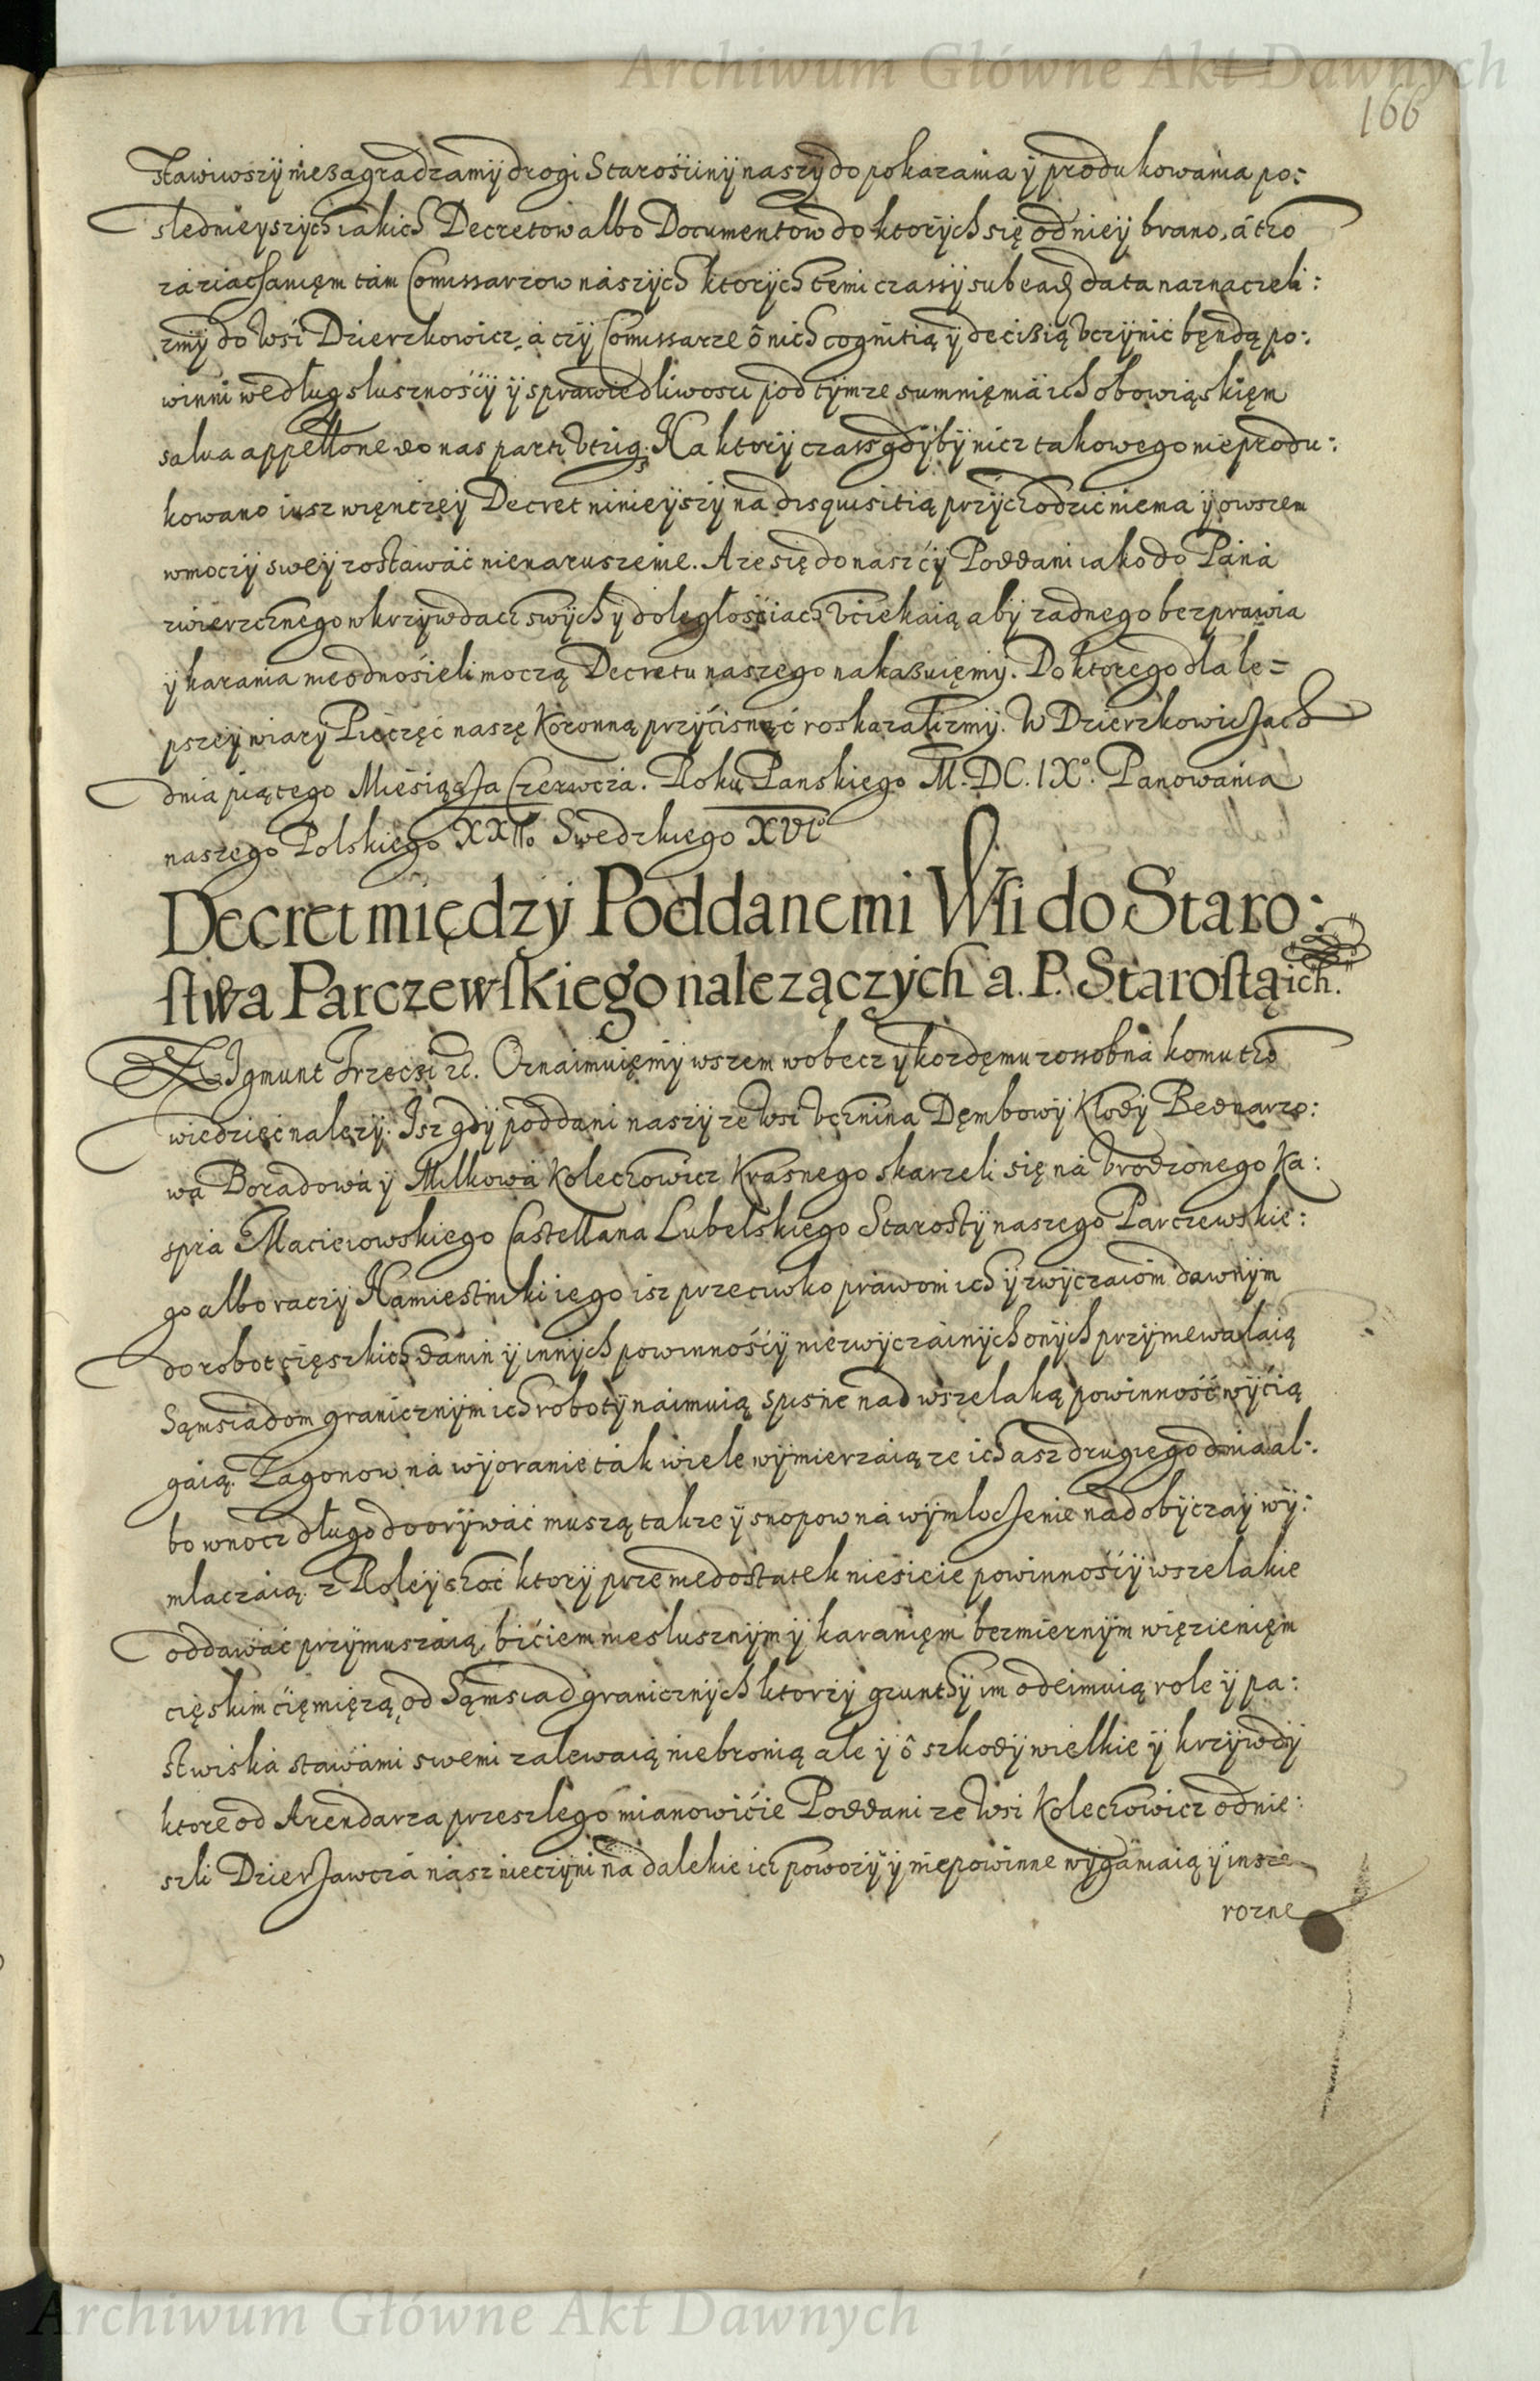 Archiwum Główne Akt Dawnych
166
stawiwszÿ nieβagradzamÿ drogi Starościnÿ naszÿ do pokazania ÿ produkowania po:
slednieÿszÿch iakich Decretow albo Documentow do ktorÿch się od nieÿ brano, á tzo
za ziachaniem tám Comissarzow nászÿch ktorÿch temi czassÿ sub ead data naznaczeli:
zmÿ do Wśi Dzierzkowicz, á czÿ Comissarze ô nich cognitią ÿ deciβią vczÿnic bęndą po:
winni według slusznośćÿ ÿ sprawiedliwosci pod tÿmze sumnięniá ich obowiąskięm
salua appellone do nas parti vtriq. Na ktorÿ czass gdÿbÿ nicz takowego nie produ:
kowano iusz więncżeÿ Decret ninieÿszÿ na disquisitią przÿchodzic niema ÿ owszem
w moczÿ sweÿ zostawáć nienaruszenie. A ze się do nasz ćÿ Poddani iako do Páná
zwierzchnego w krzÿwdach swÿch ÿ doległośćiach vciekaią abÿ zadnego bezprawia
ÿ karania nie odnośieli moczą Decretu naszego nakaβuięmÿ. Do ktorego dla le=
pszeÿ wiarÿ Pieczęć naszę Koronną przÿćisnąć roskazalizmÿ. W Dzierzkowiczach
dnia piątego Mieśiącza Czerwcza. Roku Panskiego M.DC.IXo. Panowánia
naszego Polskiego XXIIo Swedzkiego XVIo
Decret między Poddanemi Wsi do Staro:
stwa Parczewskiego nalezączych a. P. Starostą ich.
ZIgmunt Trzeci etc. Oznaimuięmÿ wszem wobecz ÿ kozdęmu zossobná komu tzo
wiedzieć nalezÿ. Isz gdÿ poddani naszÿ ze Wsi Vcznina Dęmbowÿ Kłodÿ Bednarzo:
wá Boradowá ÿ Milkowá Kolechowicz Krasnego skarzeli się ná Vrodzonego Ka:
spra Macieiowskiego Castellana Lubelskiego Starostÿ naszego Parczewskie:
go albo raczÿ Namiestniki iego isz przeciwko práwom ich ÿ zwÿczaiom dawnÿm
do robot cięszkich danin ÿ innÿch powinnośćÿ niezwÿczáinÿch onÿch przÿniewalaią
Sąmsiadom granicznÿm ich robotÿ náimuią spisne nad wszelaką powinność wÿćią
gaią. Zagonow ná wÿoranie ták wiele wÿmierzáią ze ich asz drugiego dnia al:
bo w nocz długo dooriwáć muszą takze ÿ snopow ná wÿmłoczenie nad obÿczaÿ wÿ:
mlaczaią. z Roleÿ choć ktorÿ prze niedostatek nieśieie powinnośćÿ wszelakie
oddawáć przÿmuszaią, bićiem nieslusznÿm ÿ karanięm bezmiernÿm więzienięm
cięskim ćięmięzą, od Sąmsiad granicznÿch ktorzÿ grunthÿ im odeimuią role ÿ pa:
stwiská stawámi swemi zalewaią nie bronią ale ÿ ô szkodÿ wielkie ÿ krzÿwdÿ
ktore od Arendarza przeszlego mianowićie Poddani ze Wsi Kolechowicz odnie:
szli Dzierzawcza nász nieczÿni ná dalekie ich powozÿ ÿ niepowinne wÿgániaią ÿ insze
rozne
Archiwum Główne Akt Dawnych